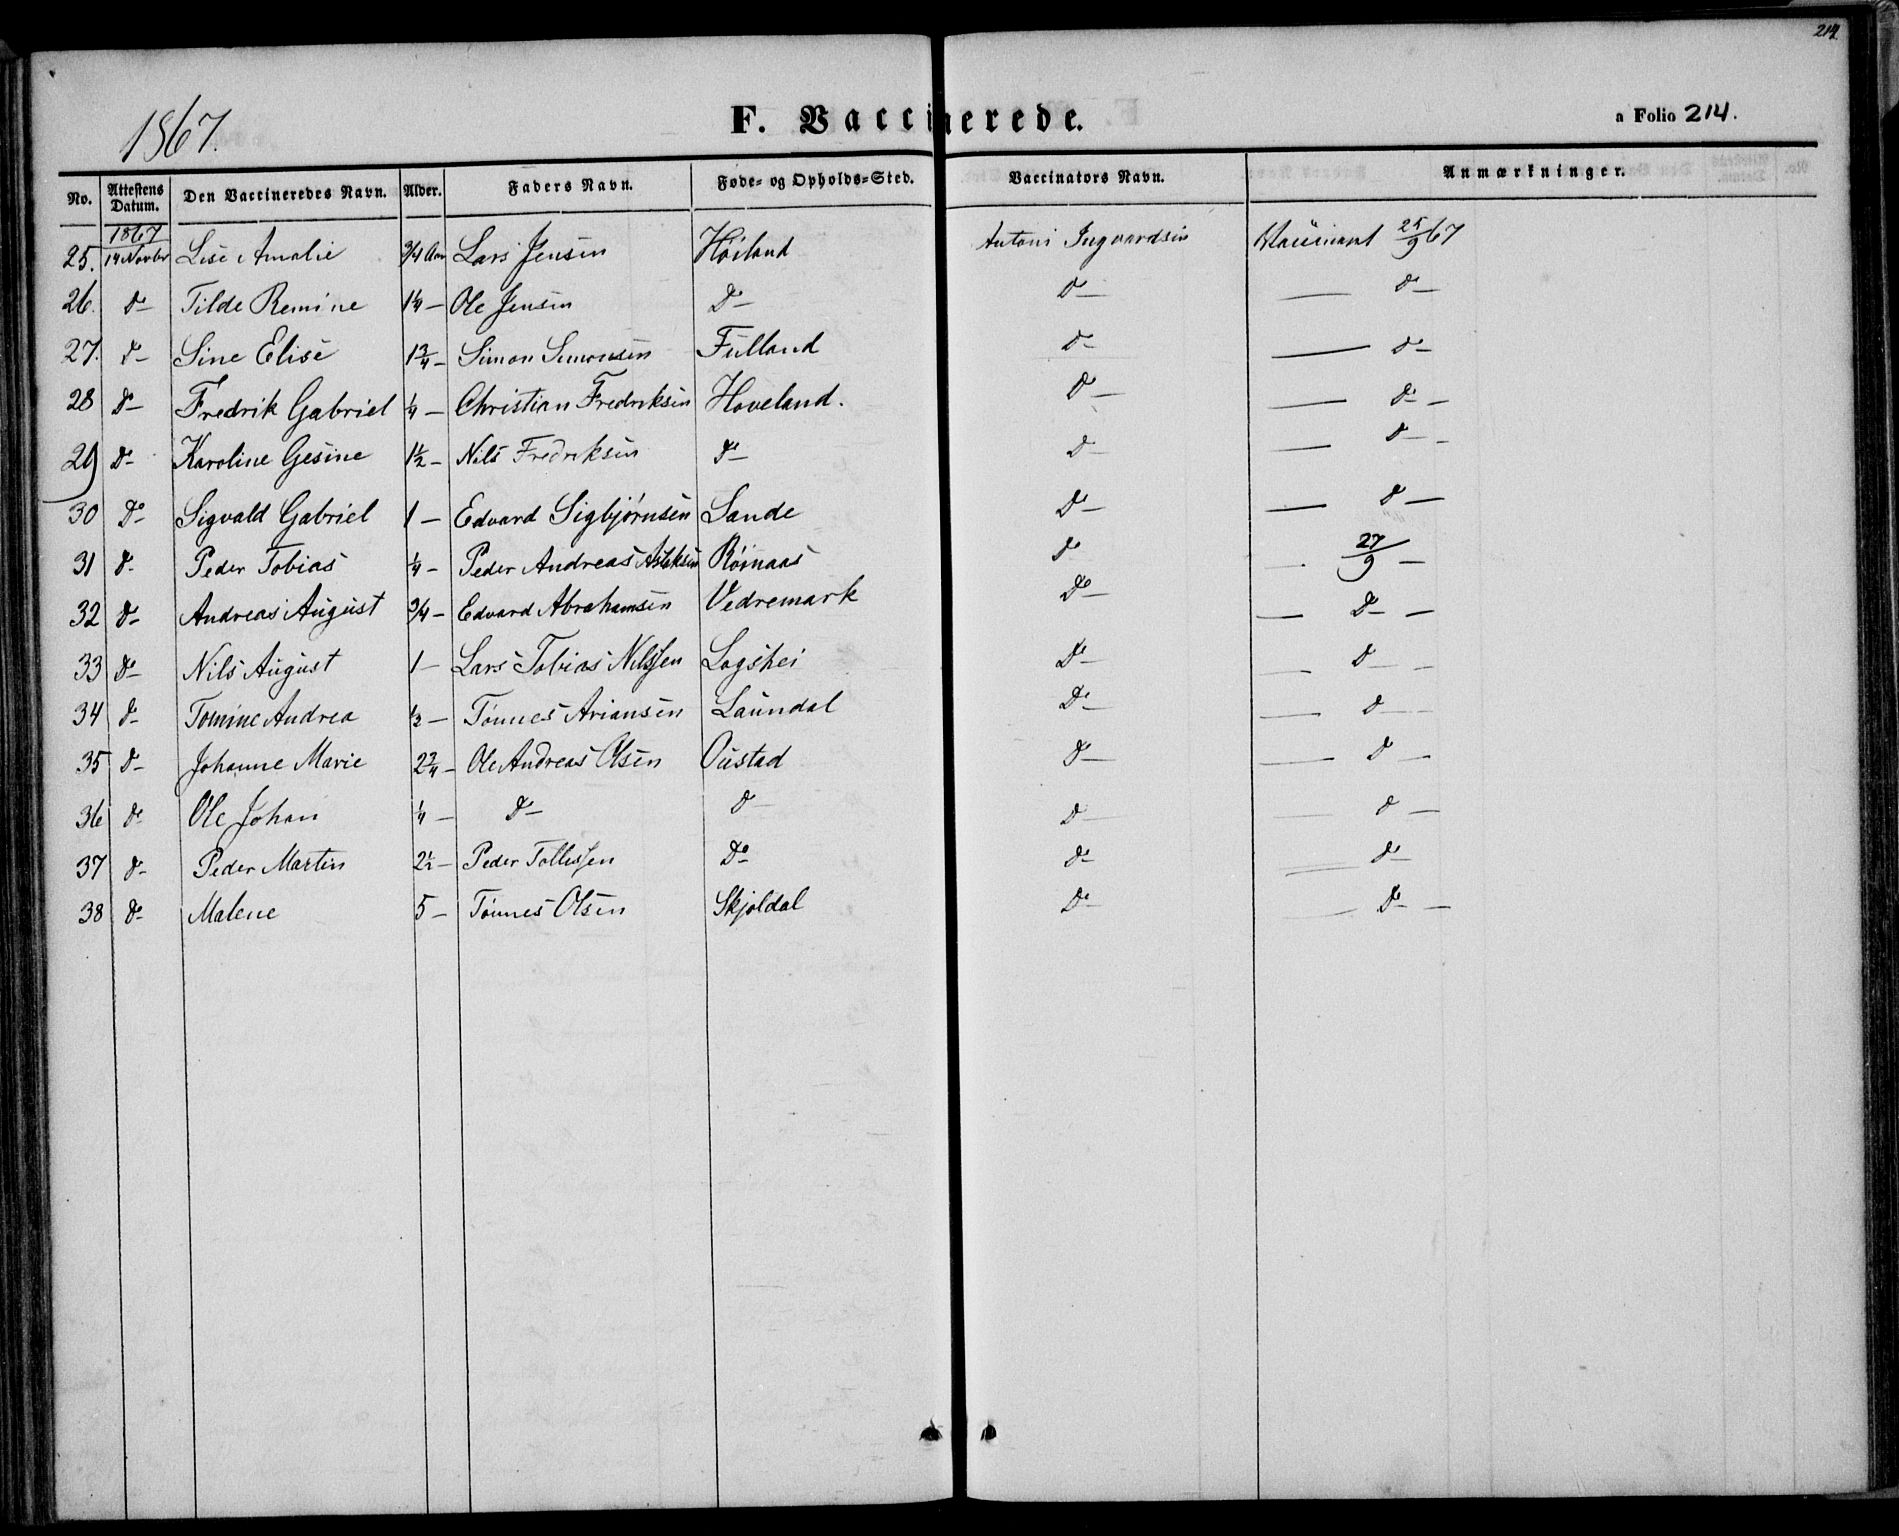 214.
1867.
F. Vaccinerede.
a Folio 214.
No. Attestens Datum. Den Vaccineredes Navn. Alder. Faders Navn. Føde- og Opholds-Sted. Vaccinators Navn. Anmærkninger.
1867
25. 14 Novbr Lise Amalie 3/4 Aar Lars Jensen Høiland Antoni Ingvardsen 25/9 67
26. Do– Tilde Remine 1 1/4 – Ole Jensen Do– Do– — Do–
27. Do– Sine Elise 1 3/4 – Simon Simonsen Fulland Do– — Do–
28 Do– Fredrik Gabriel 1/4 – Christian Fredriksen Hoveland. Do– — Do– –
29 Do– Karoline Gesine 1 1/2 – Nils Fredriksen Do– Do– — Do– –
30 Do– Sigvald Gabriel 1 – Edvard Sigbjørnsen Sande Do– — Do –
31 Do– Peder Tobias 1/4 – Peder Andreas Rørnaas Do — 27/9 –
32 Do– Andreas August 3/4 – Edvard Abrahamsen Vedremark Do– — Do– –
33 Do– Nils August 1 – Lars Tobias Nilssen Logshei Do– — Do– –
34 Do– Tomine Andrea 1/2 – Tønnes Ariansen Laundal Do– — Do– –
35 Do– Johanne Marie 2 3/4 – Ole Andreas Olsen Oustad Do– — Do –
36 Do– Ole Johan 1/4 – Do– Do– Do– — Do –
37 Do– Peder Martin 2 1/2 – Peder Tollessen Do– Do– — Do–
38 Do– Malene 5 – Tønnes Olsen Skjoldal Do– — Do– –